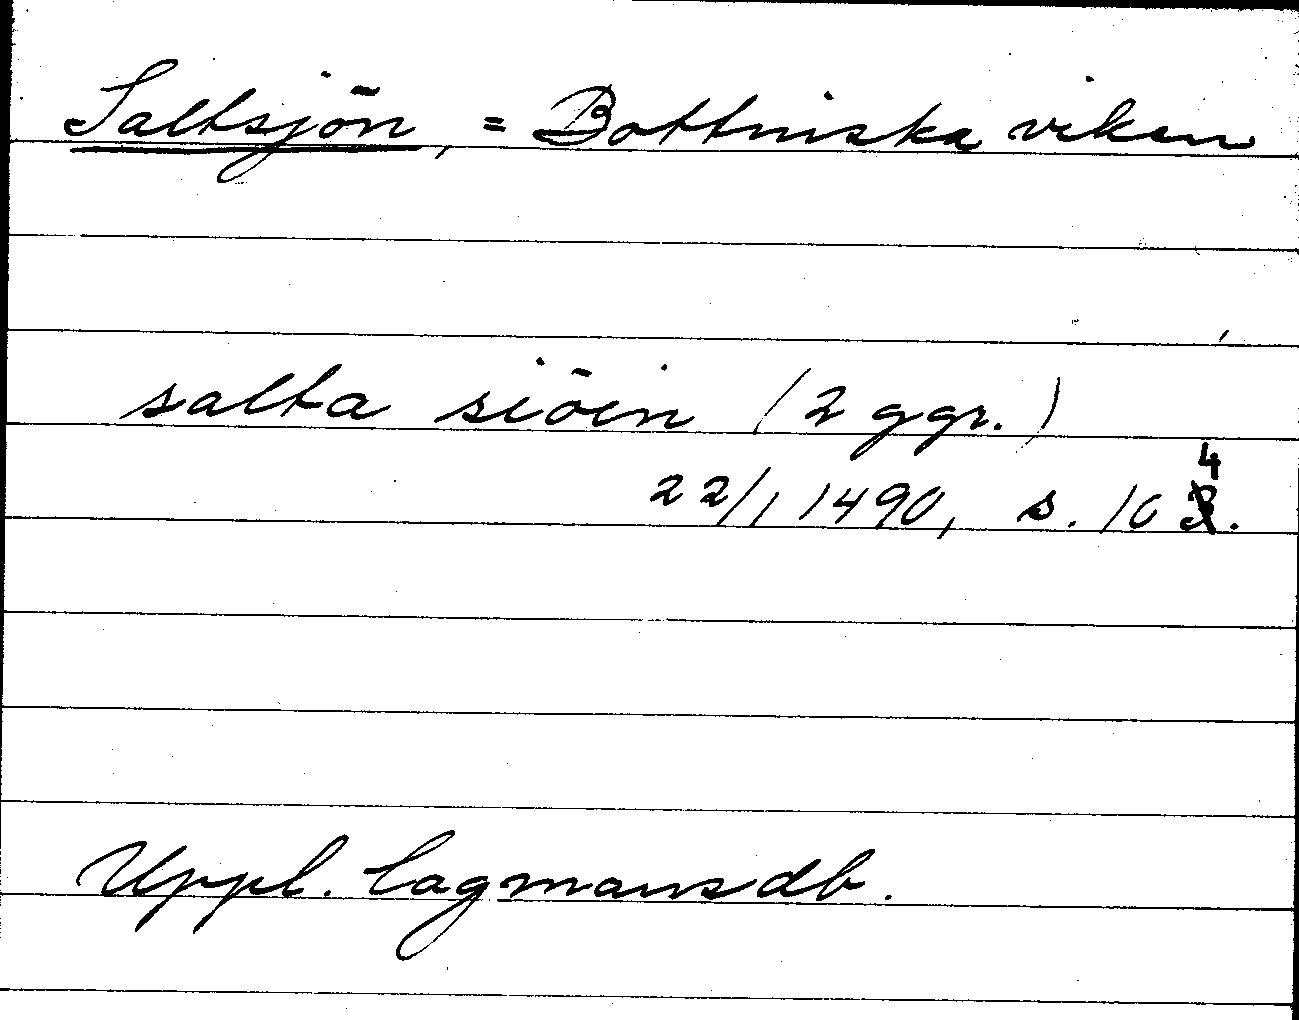 Saltsjön, = Bottniska viken
salta siöin (2 ggr.)
22/1 1490, s. 104.
Uppl. lagmansdb.